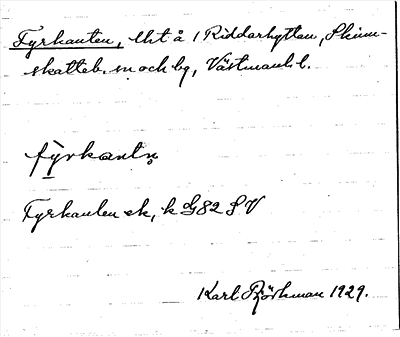 Fyrkanten, lht å 1 Riddarhyttan, Skinn-
skatteb. sn och bg, Västmanl. l.
fyrkantn̥
Fyrkanten ek, k G82 SV
Karl Björkman 1929.